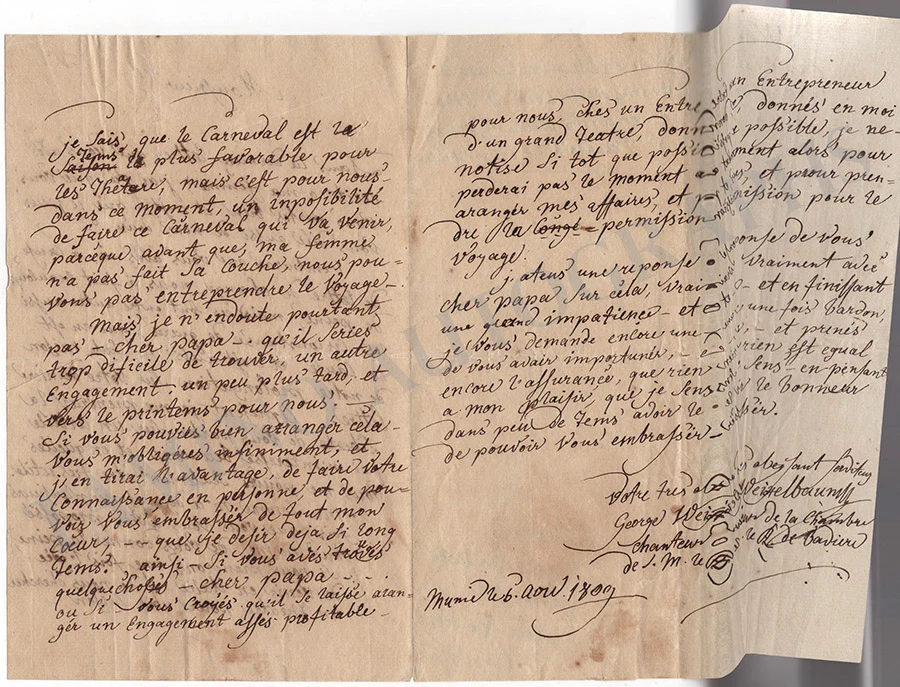 je sais, que le Carneval est le
Saison Tems le plus favorable pour
les Thétare, mais c'est pour nous
dans ce moment, un inposibilité
de faire ce Carneval qui va venir,
parcéque avant que, ma femme
n'a pas fait sa Couche, nous pou-
vons pas entreprendre le Voyage –
Mais je n'endoute pourtant
pas – cher papa – qu'il series
trop dificile de trouver, un autre
Engagement un peu plus tard, et
vers le printems pour nous. –
Si vous pouviés bien arranger cela –
vous m'obligéres infinimment, et
j'en tirai l'avantage, de faire votre
Connaissance en personne, et de pou-
voir vous embrassér de tout mon
Cœur, – – que je desir deja si long
tems. – ainsi – Si vous avés
quelque choses – cher papa – – –
ou si – vous croyés qu'il se laisse aran-
gér un Engagement assés profitable –
pour nous, chés un Entrepreneur
d'un grand Teatre, donnés en moi
notise si tot que possible, je ne
perderai pas le moment alors pour
aranger mes affaires, et pour pren-
dre la congé permission pour le
voyage.
j'atens une reponse de vous
cher papa sur céla, vraiment avec
une grand impatience – et en finissant
je vous demande encore une fois Pardon,
de vous avair importunés, – et prenés
encore l'assurancé, que rien est equal
a mon plaisir, que je sens – en pensant
dans peu de tems avoir le bonneur
de pouvoir vous embrassér –
Votre tres obeissant serviteur
George Weixelbaum
chanteur de la Chambre
de S. M. le R. de Baviere
Munic le 6. Aout 1809